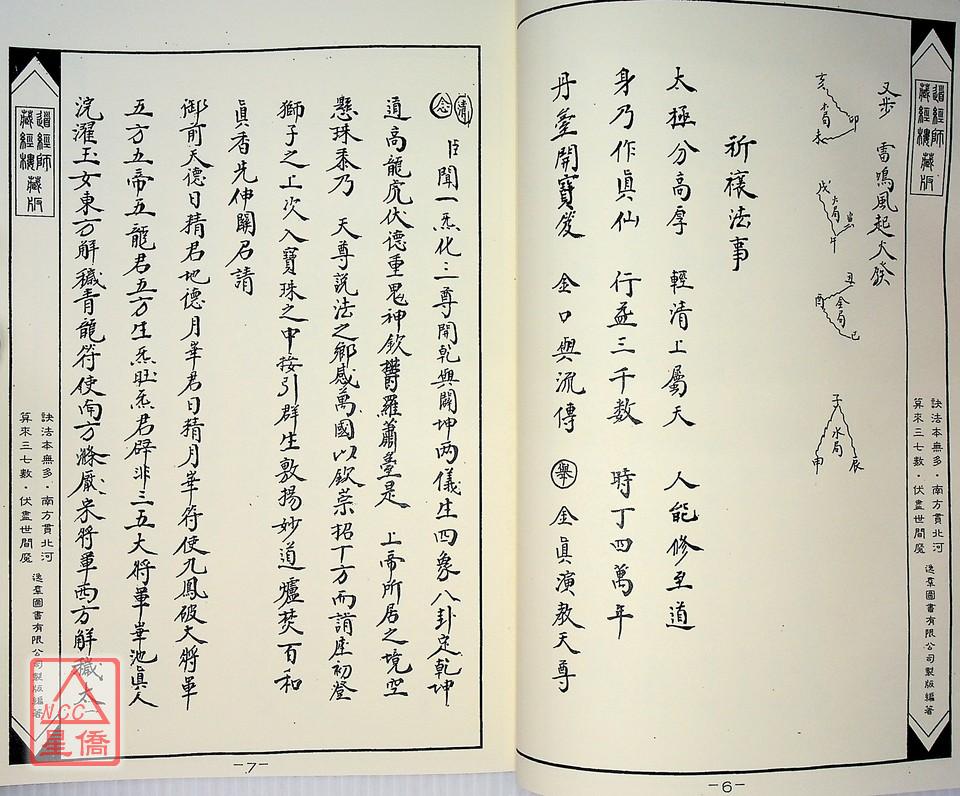 道經師
藏經樓藏版
訣法本無多・南方貫北河
算來三七數・伏盡世間魔
逸羣圖書有限公司製版編著
又步 雷鳴風起火發
亥 卯
木局
未
戌 寅
火局
午
丑
酉 金局
巳
子
水局
申 辰
祈禳法事
太極分高厚 輕清上屬天 人能修至道
身乃作真仙 行益三千数 時丁四萬年
丹臺開寶笈 金口與流傳 舉 金眞演教天尊
-6-
請
念 臣聞一炁化三尊開乾與闢坤两儀生四象八卦定乾坤
道高龍虎伏德重鬼神欽欝羅蕭臺是 上帝所居之境空
懸珠黍乃 天尊説法之鄉感萬國以欽崇招丁方而請座初登
獅子之上次入寶珠之中接引群生敷揚妙道爐焚百和
眞香先伸關召請
御前天德日精君地德月華君日精月華符使九鳳破大將軍
五方五帝五龍君五方生炁旺炁君辟非三五大将軍華池眞人
浣濯玉女東方解穢青龍符使南方滌厭宋将軍西方解穢太一
道經師
藏經樓藏版
訣法本無多・南方貫北河
算來三七數・伏盡世間魔
逸羣圖書有限公司製版編著
-7-
NCC
星僑